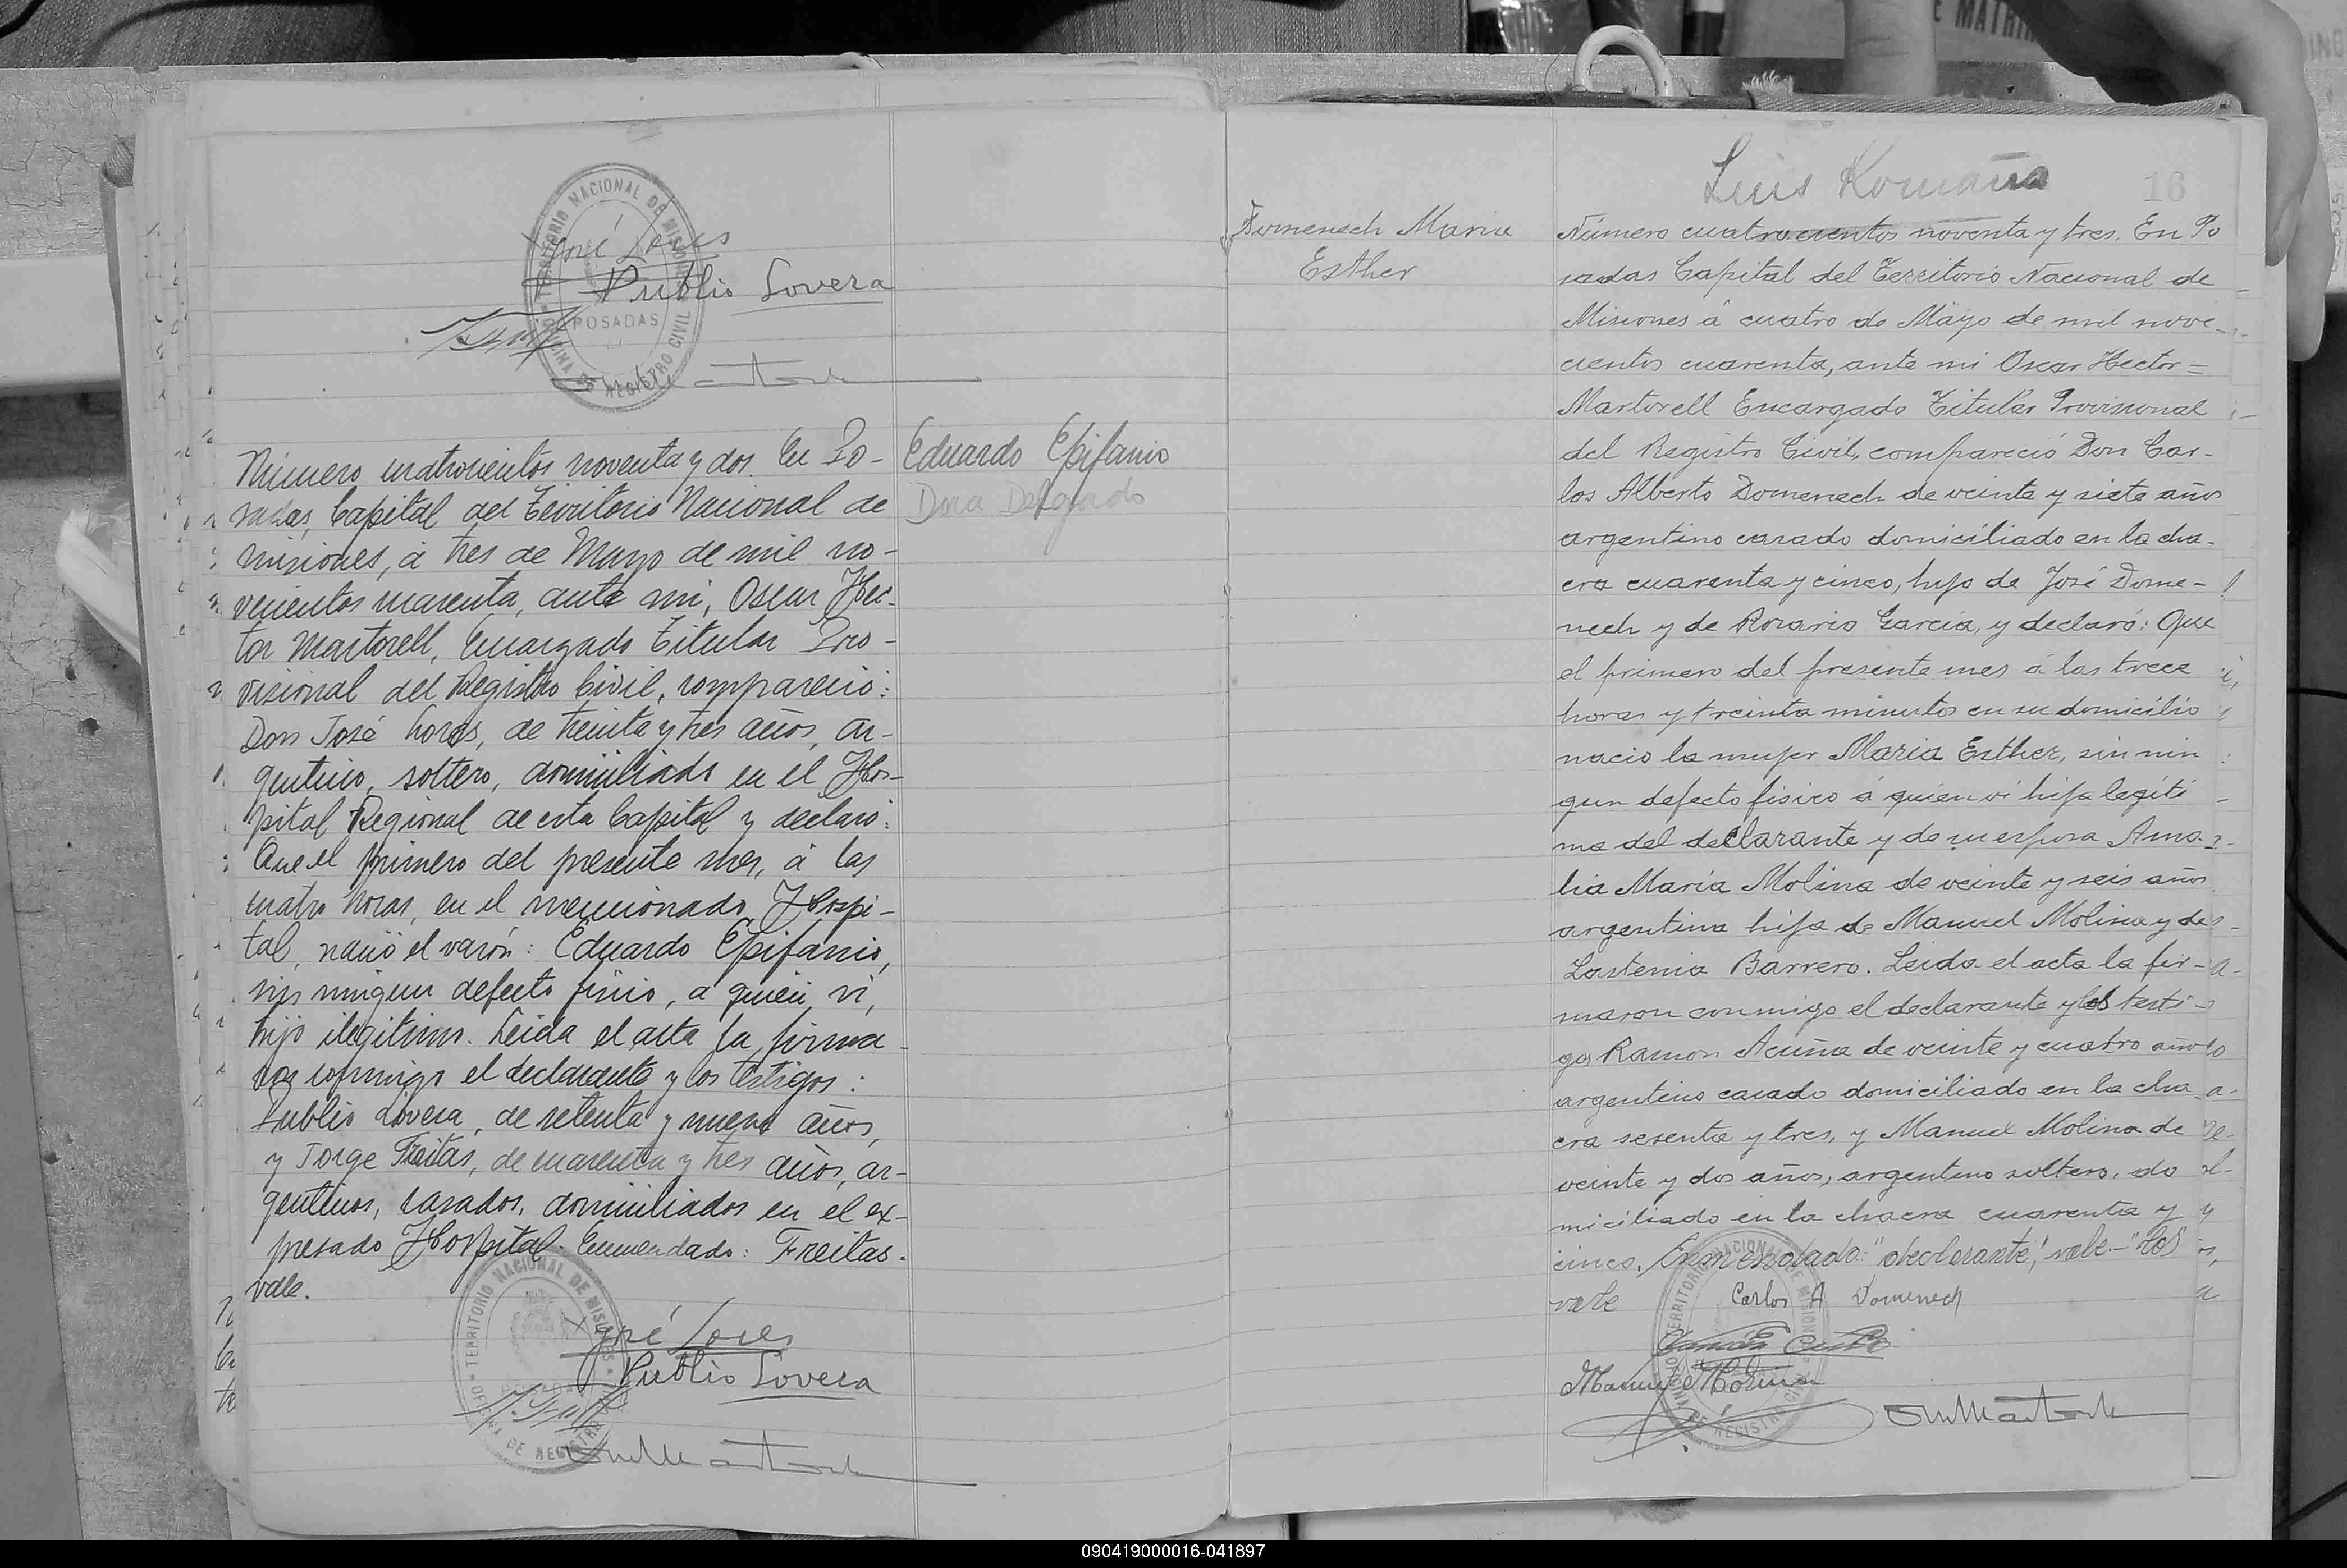 José Lores
Publio Lovera
TERRITORIO NACIONAL DE MISIONES
POSADAS
OFICINA DE REGISTRO CIVIL
Número cuatrocientos noventa y dos. En Po-
sadas, Capital del Territorio Nacional de
Misiones, á tres de Mayo de mil no-
vecientos cuarenta, ante mi, Oscar Hec-
tor Martorell, Encargado Titular Pro-
visional del Registro Civil, compareció:
Don José Lores, de treinta y tres años, ar-
gentino, soltero, domiciliado en el Hos-
pital Regional de esta Capital y declaró:
Que el primero del presente mes, á las
cuatro horas, en el mencionado Hospi-
tal, nació el varón: Eduardo Epifanio,
sin ningun defecto fisico, a quien vi,
hijo ilegitimo. Leida el acta la firma-
ron conmigo el declarante y los testigos:
Publio Lovera, de setenta y nueve años,
y Jorge Freitas, de cuarenta y tres años, ar-
gentinos, casados, domiciliados en el ex-
presado Hospital. Enmendado: Freitas.
vale.
José Lores
Publio Lovera
TERRITORIO NACIONAL DE MISIONES
OFICINA DE REGISTRO CIVIL
Eduardo Epifanio
Dora Delgado
Domenech Maria
Esther
Luis Romaña
16
Número cuatrocientos noventa y tres. En Po
sadas Capital del Territorio Nacional de
Misiones á cuatro de Mayo de mil nove-
cientos cuarenta, ante mi Oscar Hector=
Martorell Encargado Titular Provisional
del Registro Civil, compareció Don Car-
los Alberto Domenech de veinte y siete años
argentino casado domiciliado en la cha-
cra cuarenta y cinco, hijo de José Dome-
nech y de Rosario Garcia, y declaró: Que
el primero del presente mes á las trece
horas y treinta minutos en su domicilio
nacio la mujer Maria Esther, sin nin
gun defecto fisico á quien vi hija legiti
ma del declarante y de su esposa Ama-
lia Maria Molina de veinte y seis años
argentina hija de Manuel Molina y de
Lastenia Barrero. Leida el acta la fir-
maron conmigo el declarante y los testi-
gos Ramon Acuña de veinte y cuatro años
argentino casado domiciliado en la cha
cra sesenta y tres, y Manuel Molina de
veinte y dos años, argentino soltero, do
miciliado en la chacra cuarenta y
cinco. Enmendado: "declarante," vale.-"los"
vale
Carlos A Domenech
Manuel Molina
TERRITORIO NACIONAL DE MISIONES
OFICINA DE REGISTRO CIVIL
090419000016-041897